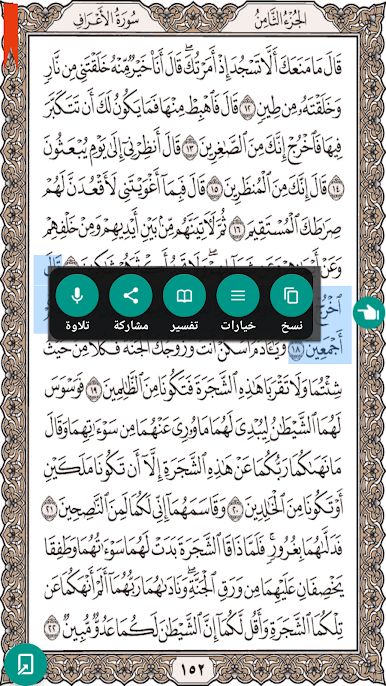 سُورَةُ الأَعْرَافِ الجُزْءُ الثَّامِنُ
قَالَ مَا مَنَعَكَ أَلَّا تَسْجُدَ إِذْ أَمَرْتُكَ ۖ قَالَ أَنَا۠ خَيْرٌ مِّنْهُ خَلَقْتَنِي مِن نَّارٍ
وَخَلَقْتَهُۥ مِن طِينٍ ١٢ قَالَ فَٱهْبِطْ مِنْهَا فَمَا يَكُونُ لَكَ أَن تَتَكَبَّرَ
فِيهَا فَٱخْرُجْ إِنَّكَ مِنَ ٱلصَّٰغِرِينَ ١٣ قَالَ أَنظِرْنِيٓ إِلَىٰ يَوْمِ يُبْعَثُونَ
١٤ قَالَ إِنَّكَ مِنَ ٱلْمُنظَرِينَ ١٥ قَالَ فَبِمَآ أَغْوَيْتَنِي لَأَقْعُدَنَّ لَهُمْ
صِرَٰطَكَ ٱلْمُسْتَقِيمَ ١٦ ثُمَّ لَءَاتِيَنَّهُم مِّنۢ بَيْنِ أَيْدِيهِمْ وَمِنْ خَلْفِهِمْ
وَعَنْ قَالَ
نسخ خيارات تفسير مشاركة تلاوة
أَجْمَعِينَ ١٨ وَيَٰٓـَٔادَمُ ٱسْكُنْ أَنتَ وَزَوْجُكَ ٱلْجَنَّةَ فَكُلَا مِنْ حَيْثُ
شِئْتُمَا وَلَا تَقْرَبَا هَٰذِهِ ٱلشَّجَرَةَ فَتَكُونَا مِنَ ٱلظَّٰلِمِينَ ١٩ فَوَسْوَسَ
لَهُمَا ٱلشَّيْطَٰنُ لِيُبْدِيَ لَهُمَا مَا وُۥرِيَ عَنْهُمَا مِن سَوْءَٰتِهِمَا وَقَالَ
مَا نَهَىٰكُمَا رَبُّكُمَا عَنْ هَٰذِهِ ٱلشَّجَرَةِ إِلَّآ أَن تَكُونَا مَلَكَيْنِ
أَوْ تَكُونَا مِنَ ٱلْخَٰلِدِينَ ٢٠ وَقَاسَمَهُمَآ إِنِّي لَكُمَا لَمِنَ ٱلنَّٰصِحِينَ ٢١
فَدَلَّىٰهُمَا بِغُرُورٍ ۚ فَلَمَّا ذَاقَا ٱلشَّجَرَةَ بَدَتْ لَهُمَا سَوْءَٰتُهُمَا وَطَفِقَا
يَخْصِفَانِ عَلَيْهِمَا مِن وَرَقِ ٱلْجَنَّةِ ۖ وَنَادَىٰهُمَا رَبُّهُمَآ أَلَمْ أَنْهَكُمَا عَن
تِلْكُمَا ٱلشَّجَرَةِ وَأَقُل لَّكُمَآ إِنَّ ٱلشَّيْطَٰنَ لَكُمَا عَدُوٌّ مُّبِينٌ ٢٢
١٥٢